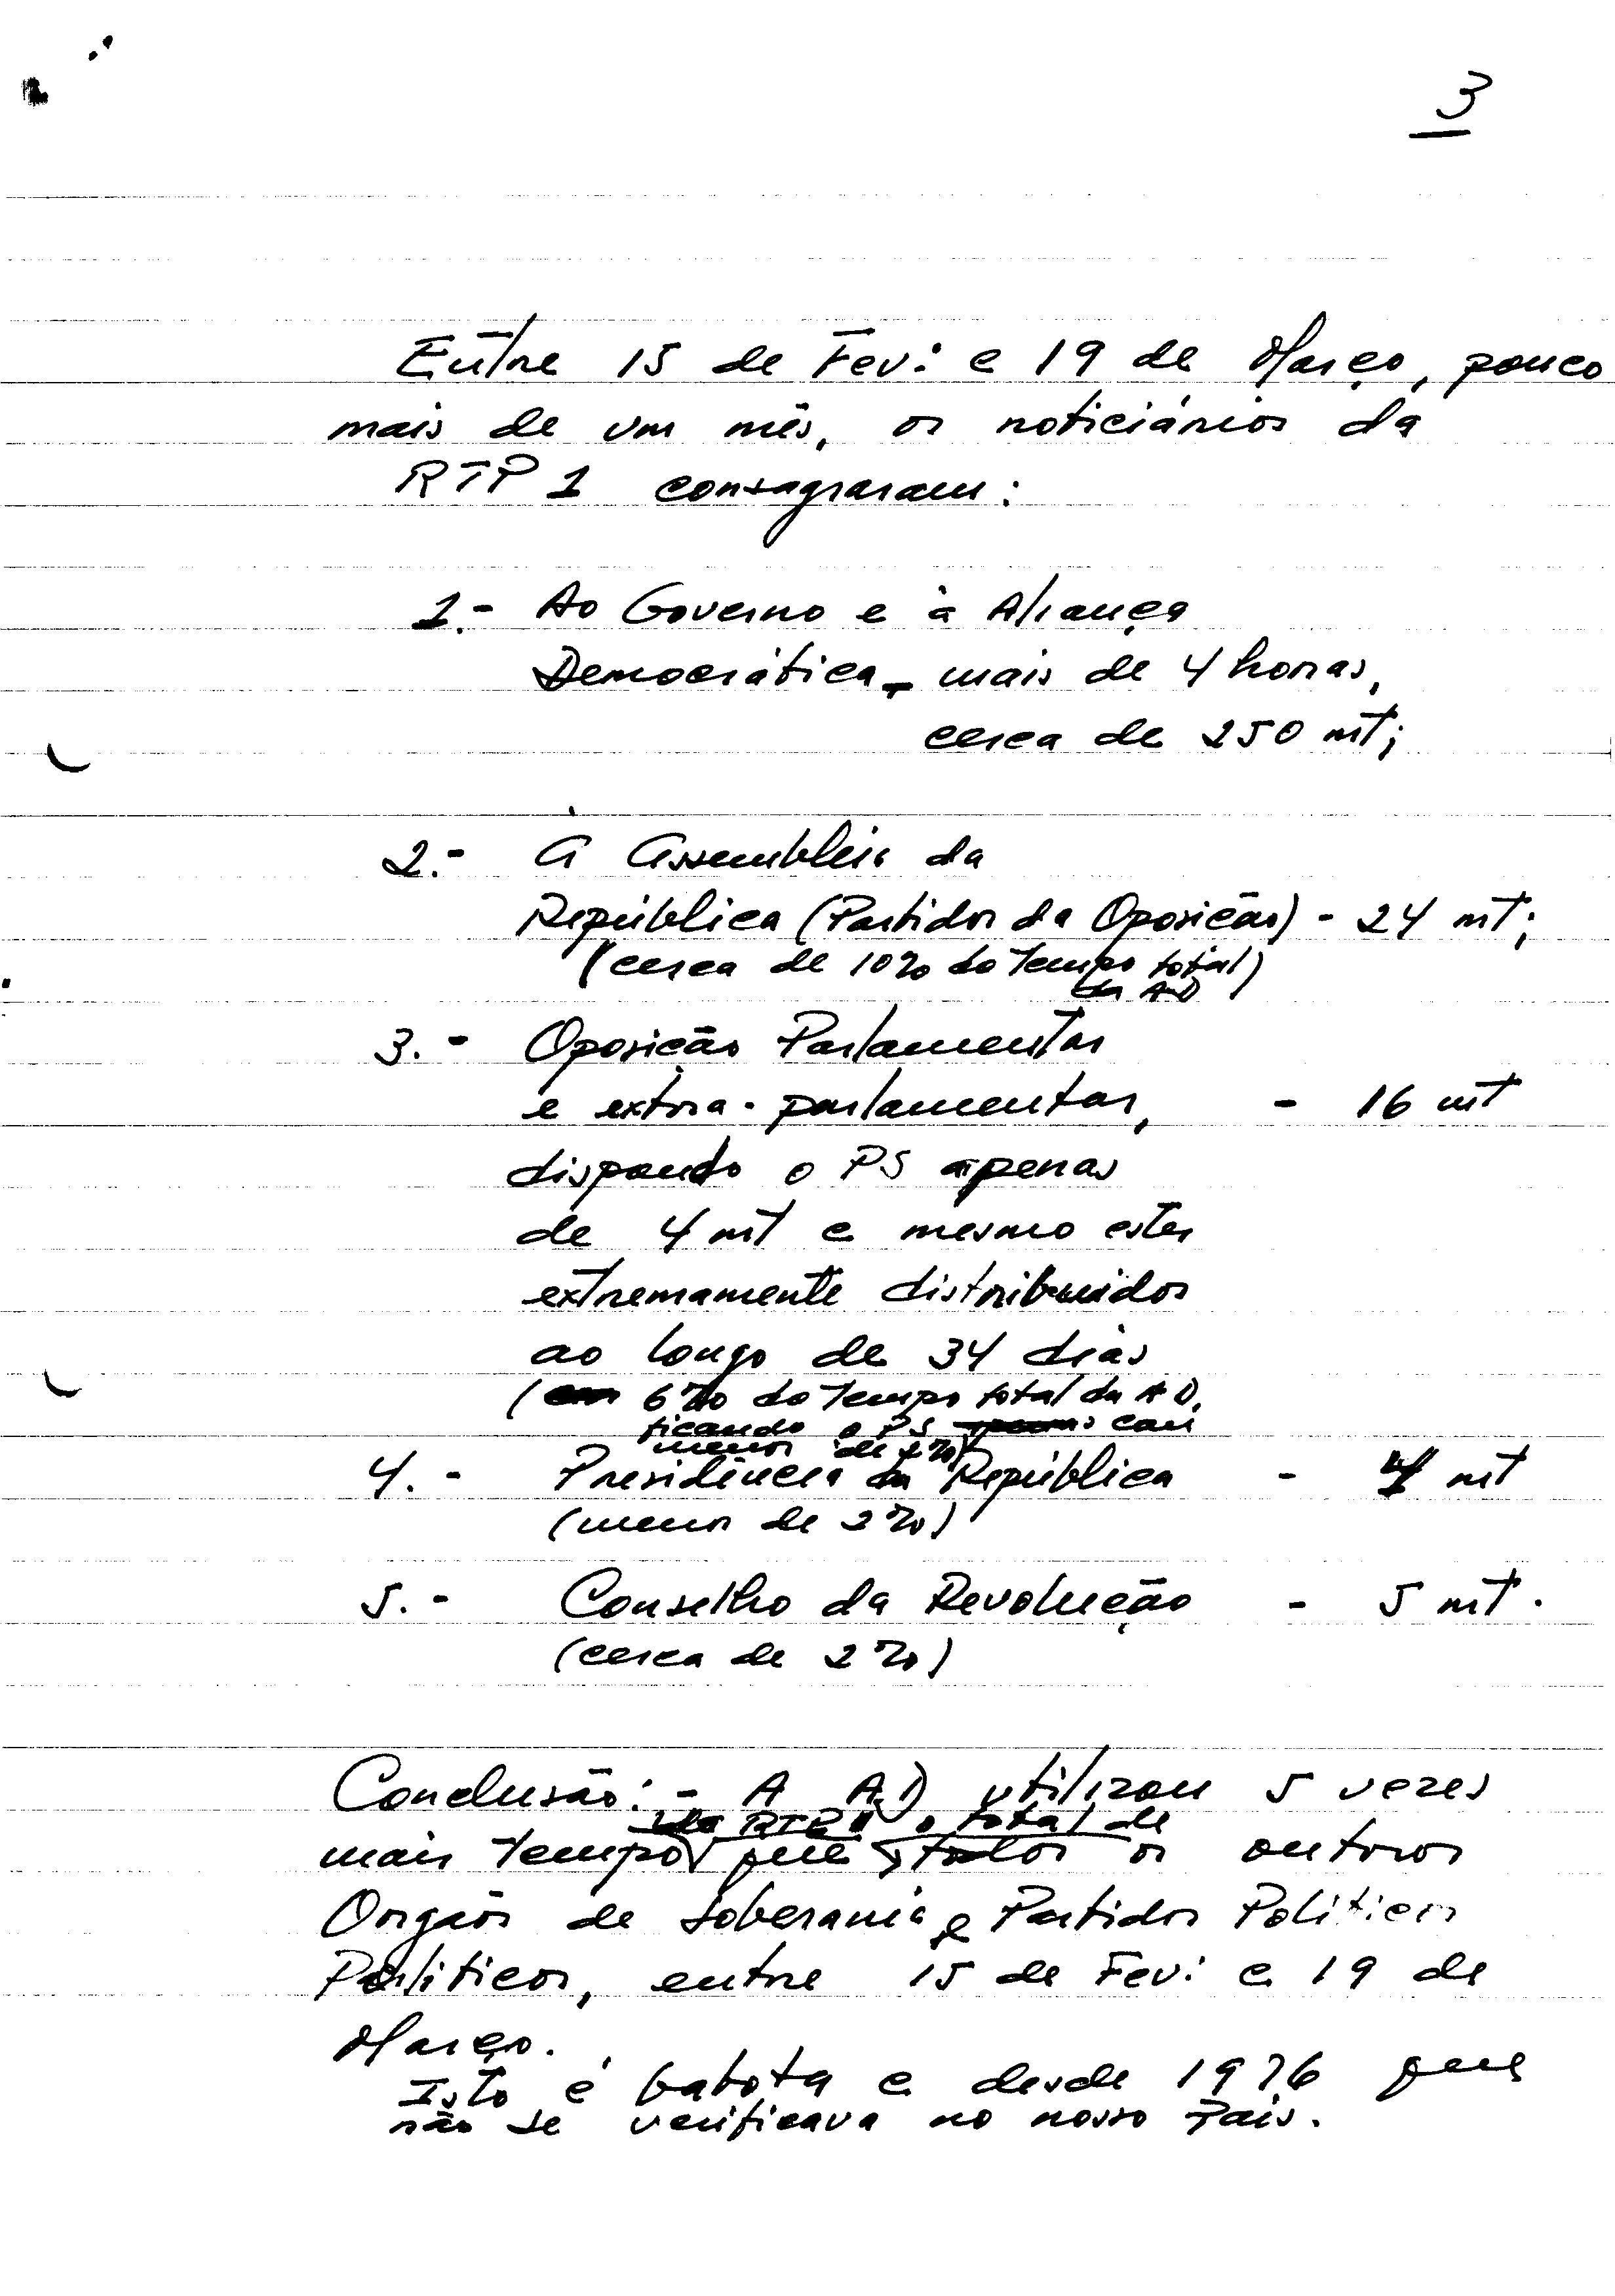 3
Entre 15 de Fev: e 19 de Março, pouco
mais de um mês, os noticiários da
RTP 1 consagraram:
1.- Ao Governo e à Aliança
Democrática - mais de 4 horas,
cerca de 250 mt;
2.- À Assembleia da
República (Partidos da Oposição) - 24 mt;
(cerca de 10% do tempo total)
da AD
3.- Oposição Parlamentar
e extra-parlamentar, - 16 mt
dispondo o PS apenas
de 4 mt e mesmo estes
extremamente distribuidos
ao longo de 34 dias
( 6% do tempo total da AD,
ficando o PS com
menos de 2%)
4.- Presidência da República - 4 mt
(menos de 2%)
5.- Conselho da Revolução - 5 mt.
(cerca de 2%)
Conclusão: - A AD utilizou 5 vezes
da RTP 1 o total de
mais tempo que todos os outros
Orgãos de Soberania e Partidos Politicos
Politicos, entre 15 de Fev: e 19 de
Março.
Isto é batota e desde 1976 que
não se verificava no nosso País.